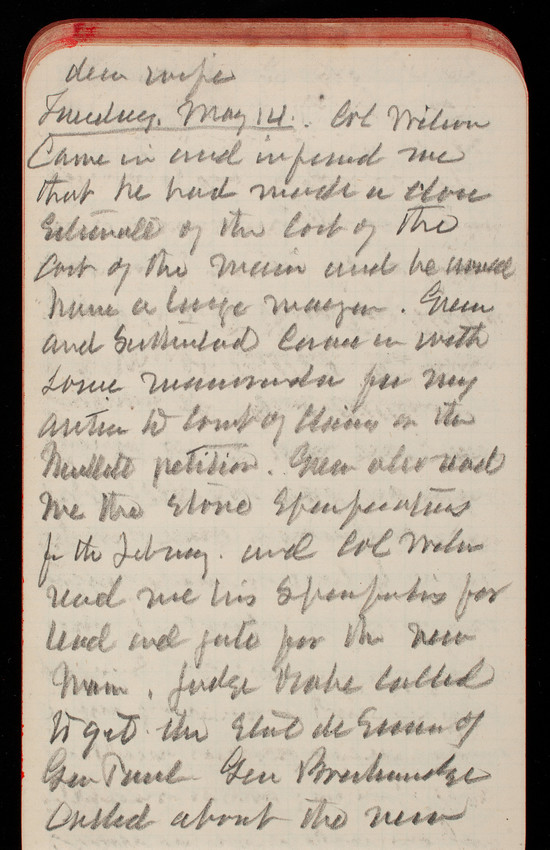 dear wife
Tuesday, May 14. Col Wilson
Came in and informed me
that he had made a close
Estimate of the Cost of the
Cost of the main and he would
have a large margin. Green
and Sutherland Came in with
some memoranda for my
action to Court of Claims on the
petition. Green also read
me the Stone Specifications
for the Library. and Col Wilson
read me his Specifications for
lead and gate for the new
Main. Judge Drake called
to get the
Gen Gen Breckinridge
Called about the new